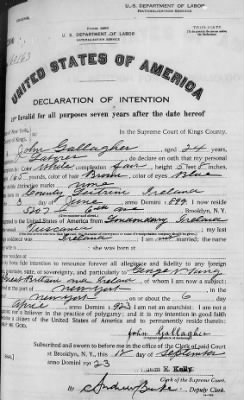 U. S. DEPARTMENT OF LABOR
NATURALIZATION SERVICE
U. S. DEPARTMENT OF LABOR
NATURALIZATION SERVICE
UNITED STATES OF AMERICA
DECLARATION OF INTENTION
Invalid for all purposes seven years after the date hereof
In the Supreme Court of Kings County.
John Gallagher, aged 24 years,
Laborer, do declare on oath that my personal
Color White, complexion Fair, height 5 feet 8 inches,
pounds, color of hair Brown, color of eyes Blue
distinctive marks none
County Leitrim Ireland
3 day of June, anno Domini 1899; I now reside
Brooklyn, N. Y.
United States of America from Londonderry Ireland
Tuscania
Ireland; I am not married; the name
she was born at
fide intention to renounce forever all allegiance and fidelity to any foreign
state, or sovereignty, and particularly to George V King
Great Britain and Ireland, of whom I am now a subject;
port of New York, in the
New York, on or about the 6 day
April, anno Domini 1923; I am not an anarchist; I am not a
nor a believer in the practice of polygamy; and it is my intention in good faith
citizen of the United States of America and to permanently reside therein:
John Gallagher
Subscribed and sworn to before me in the office of the Clerk of said Court
at Brooklyn, N. Y., this 12 day of September
anno Domini 1923
Kelly,
Clerk of the Supreme Court.
By Andrew Burke, Deputy Clerk.